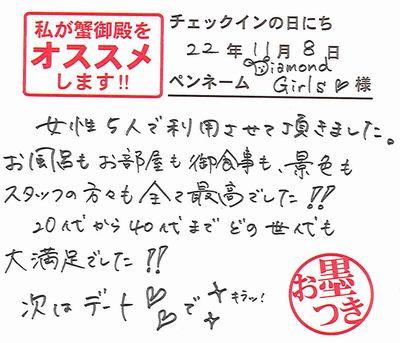 私が蟹御殿を
オススメ
します!!
チェックインの日にち
22年11月8日
Diamond
ペンネーム Girls♡様
女性5人で利用させて頂きました。
お風呂もお部屋も御食事も、景色も
スタッフの方々も全て最高でした!!
20代から40代までどの世代も
大満足でした!!
次はデート♡♡で キラッ!
お墨つき